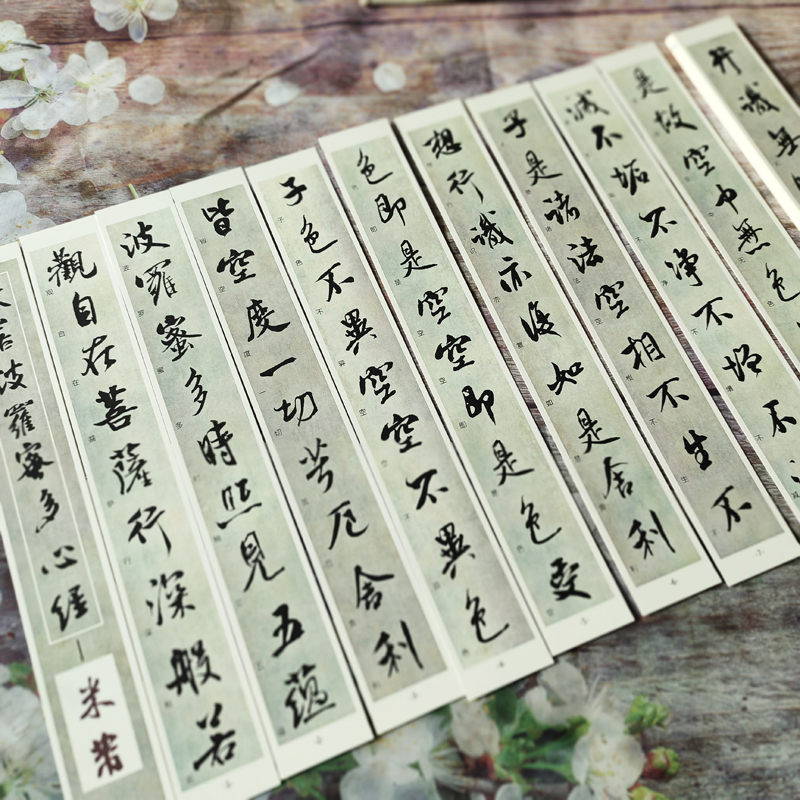 若波羅蜜多心經
米芾
觀自在菩薩行深般若
波羅蜜多時照見五蘊
皆空度一切苦厄舍利
子色不異空空不異色
色即是空空即是色受
想行識亦復如是舍利
子是諸法空相不生不
滅不垢不淨不增不
是故空中無色
行識無